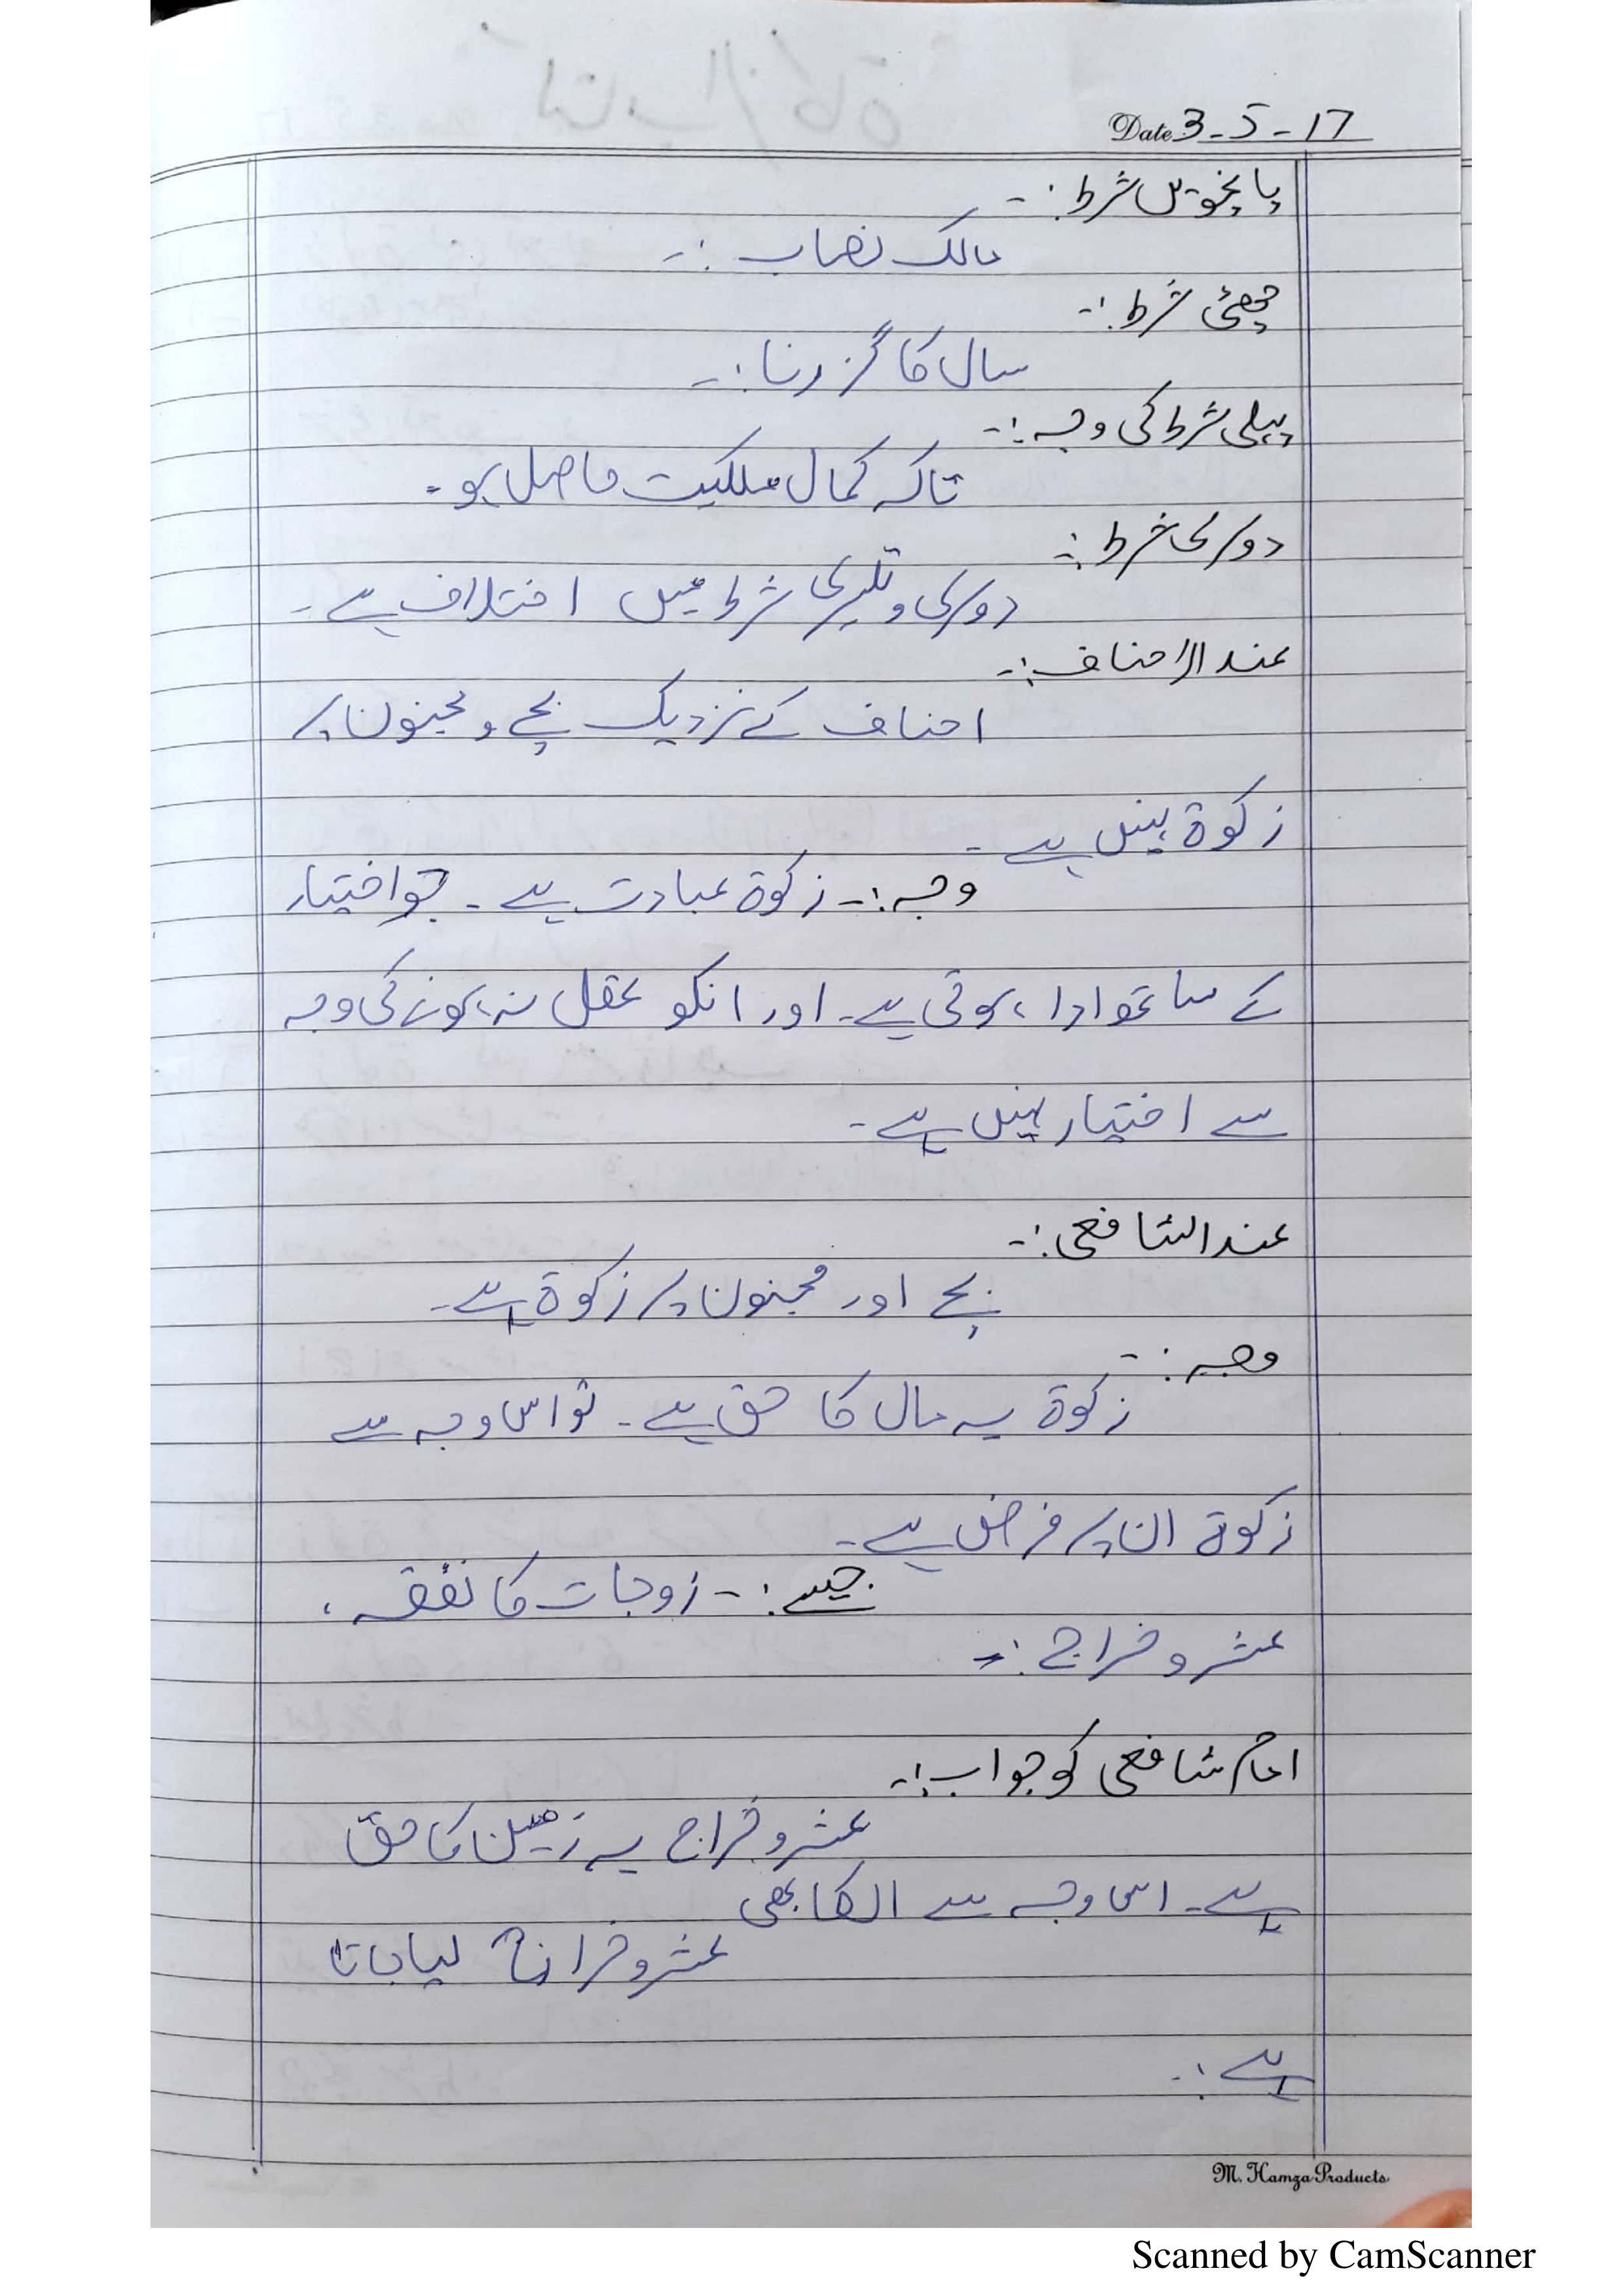 Date 3-5-17
پانچویں شرط:-
مالک نصاب :-
چھٹی شرط :-
سال کا گزرنا :-
پہلی شرط کی وجہ :-
تاکہ کمال ملکیت حاصل ہو۔
دوسری شرط :-
دوسری و تیسری شرط میں اختلاف ہے۔
عند الاحناف :-
احناف کے نزدیک بچے و مجنون پر
زکوۃ نہیں ہے۔
وجہ :- زکوۃ عبادت ہے۔ جو اختیار
کے ساتھ ادا ہوتی ہے۔ اور انکو عقل نہ ہونے کی وجہ
سے اختیار نہیں ہے۔
عند الشافعی :-
بچے اور مجنون پر زکوۃ ہے۔
وجہ :-
زکوۃ یہ مال کا حق ہے۔ تو اس وجہ سے
زکوۃ ان پر فرض ہے۔
جیسے :- زوجات کا نفقہ،
عشر و خراج :-
امام شافعی کو جواب :-
عشر و خراج یہ زمین کا حق
ہے۔ اس وجہ سے انکا بھی
عشر و خراج لیا جاتا
ہے :-
M. Hamza Products
Scanned by CamScanner